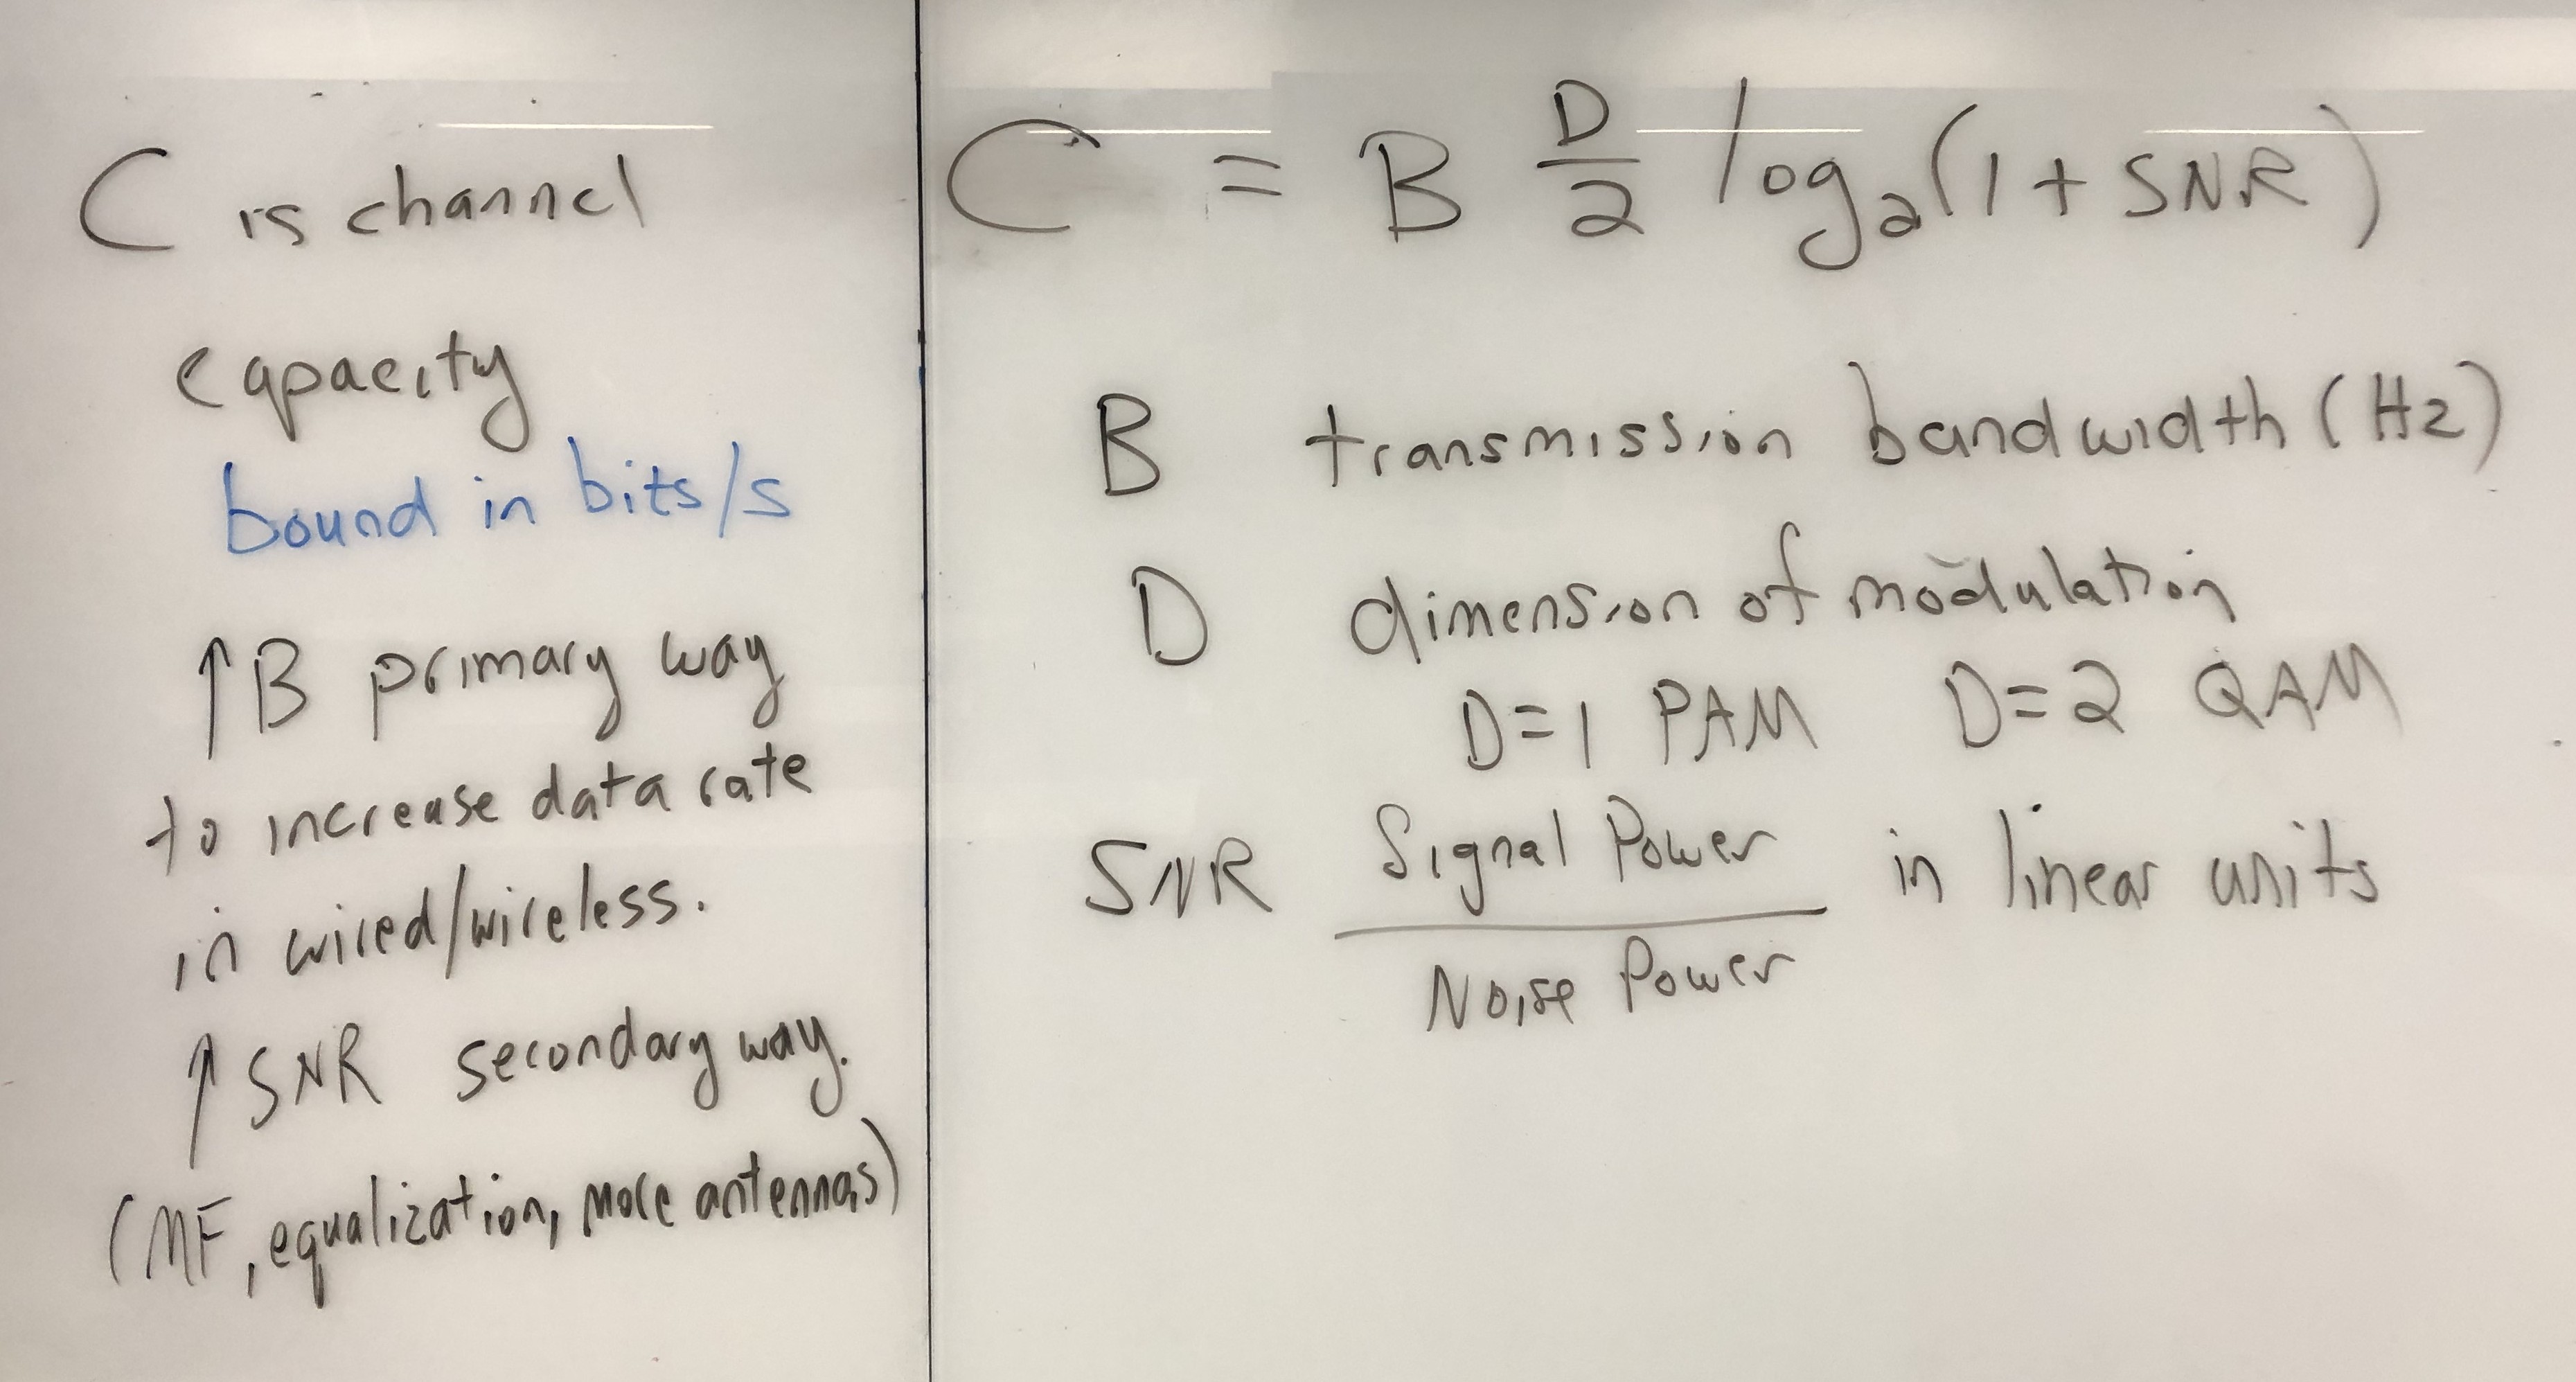 C is channel
capacity
bound in bits/s
↑B primary way
to increase data rate
in wired/wireless.
↑SNR secondary way.
(MF, equalization, more antennas)
C = B D/2 log₂(1 + SNR)
B transmission bandwidth (Hz)
D dimension of modulation
D=1 PAM D=2 QAM
SNR Signal Power in linear units
Noise Power